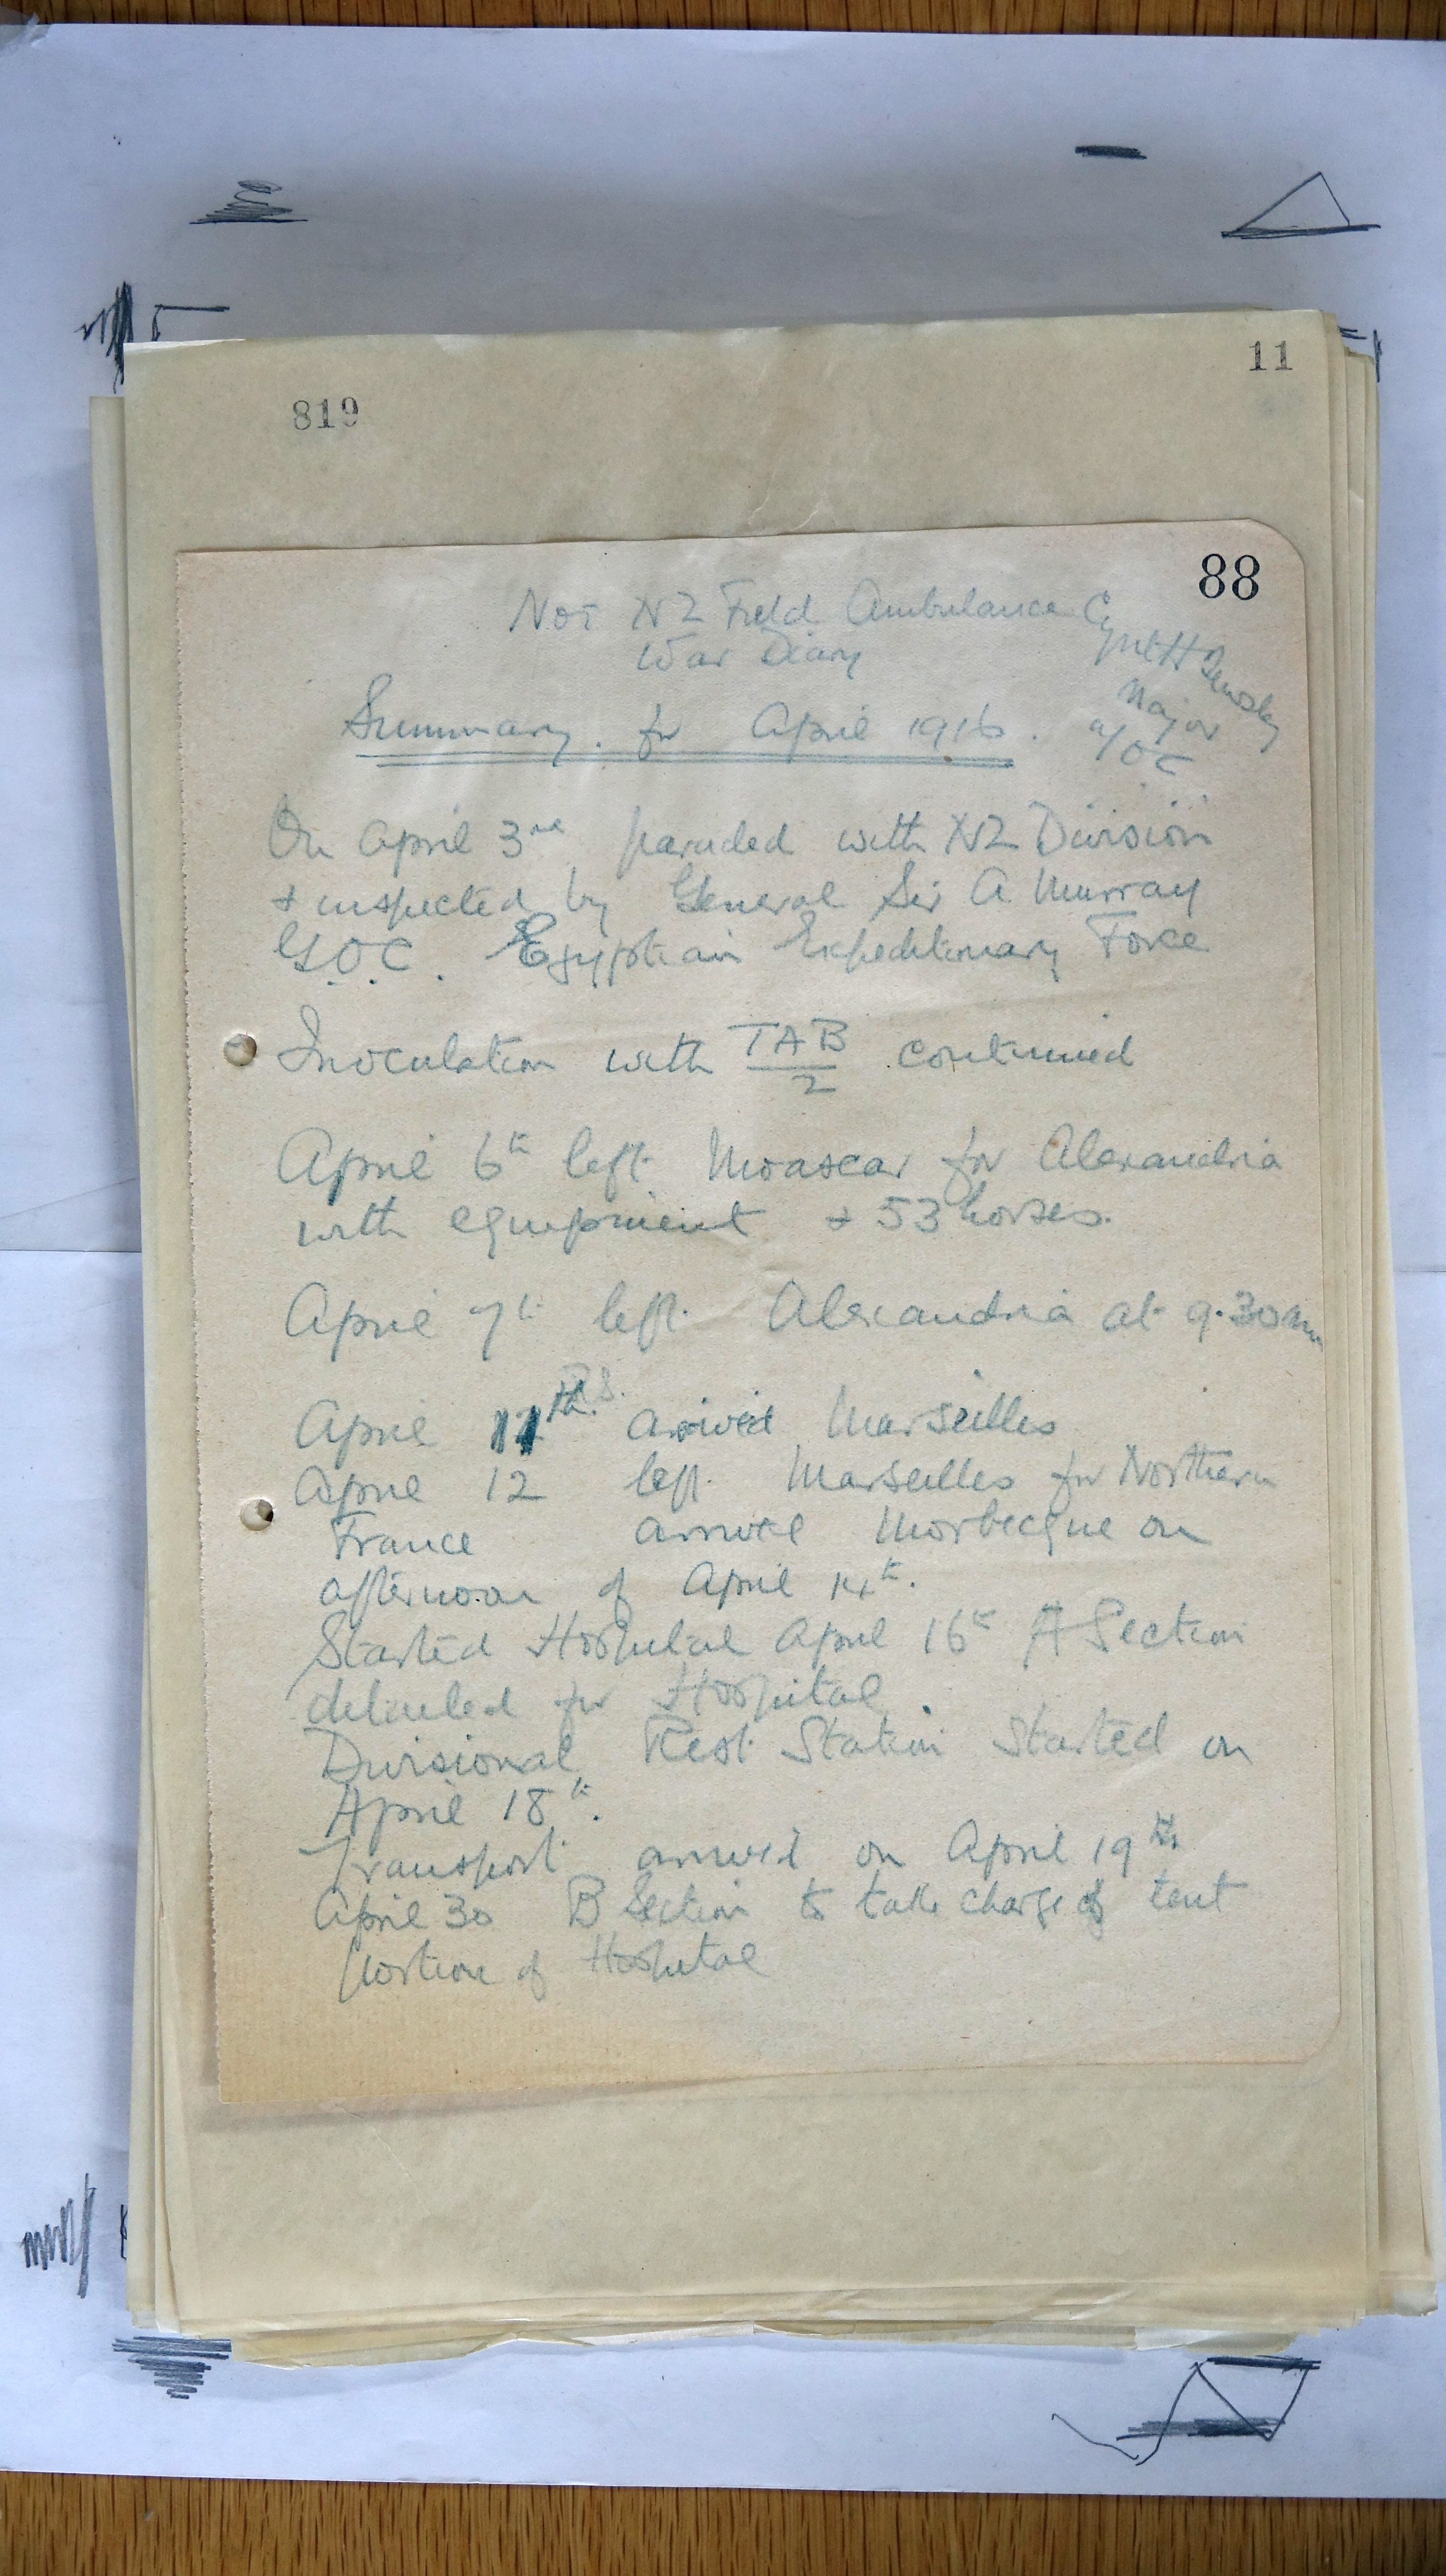 11
819
88
No 1 NZ Field Ambulance
War Diary
Major
a/OC
Summary. for April 1916.
On April 3rd paraded with NZ Division
& inspected by General Sir A Murray
G.O.C. Egyptian Expeditionary Force
Inoculation with TAB/2 continued
April 6th left Moascar for Alexandria
with equipment & 53 horses.
April 7th left Alexandria at 9.30
April 11th. arrived Marseilles
April 12 left Marseilles for Northern
France arrived Morbecque on
afternoon of April 14th.
Started Hospital April 16th A Section
detailed for Hospital.
Divisional Rest Station Started on
April 18th.
Transport arrived on April 19th
April 30 B Section to take charge of tent
portion of Hospital